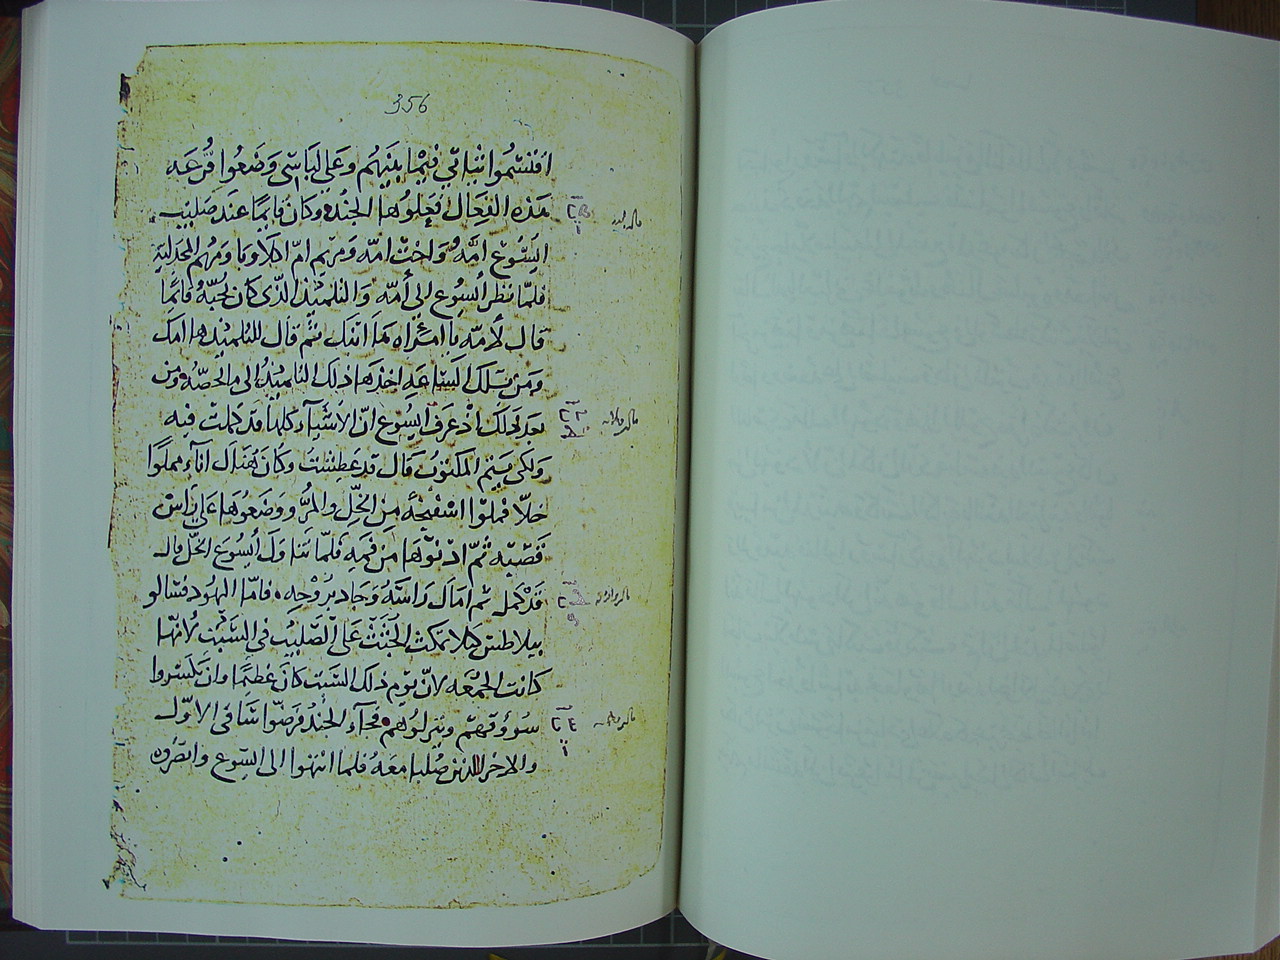 356
اقتسموا ثيابي فيما بينهم وعلي لباسي وضعوا قرعه
هذه الفعال فعلوها الجند وكان قايمًا عند صليب
ايسوع امّه واخت امّه ومريم امّ اكلاوبا ومريم المجدلية
فلمّا نظر أيسوع الي أمّه والتلميذ الذي كان يحبّه قائمًا
قال لأمّه يا امرأه ها ابنك ثم قال للتلميذ ها امك
ومن تلك الساعه اخذها ذلك التلميذ الى الخصّه ومن
بعد ذلك اذ عرف ايسوع انّ الأشياء كلها قد كملت فيه
ولكي يتم المكتوب قال قد عطشت وكان هناك اناء مملوا
خلّا فملوا اسفنجه من الخلّ والمرّ ووضعوها علي راس
قصبه ثمّ ادنوها من فمه فلمّا تناول أيسوع الخل قال
قد كمل ثم امال راسه وجاد بروحه فامّا اليهود فسالو
بيلاطس كيلا تمكث الجثث على الصليب في السبت لأنها
كانت الجمعه لانّ يوم ذلك السبت كان عظيمًا وان يكسروا
سوؤقهم وينزلوهم فجآء الجند فرضّوا ساقى الاوّل
والاخر اللذين صلبا معه فلما انتهوا الى ايسوع وابصروه